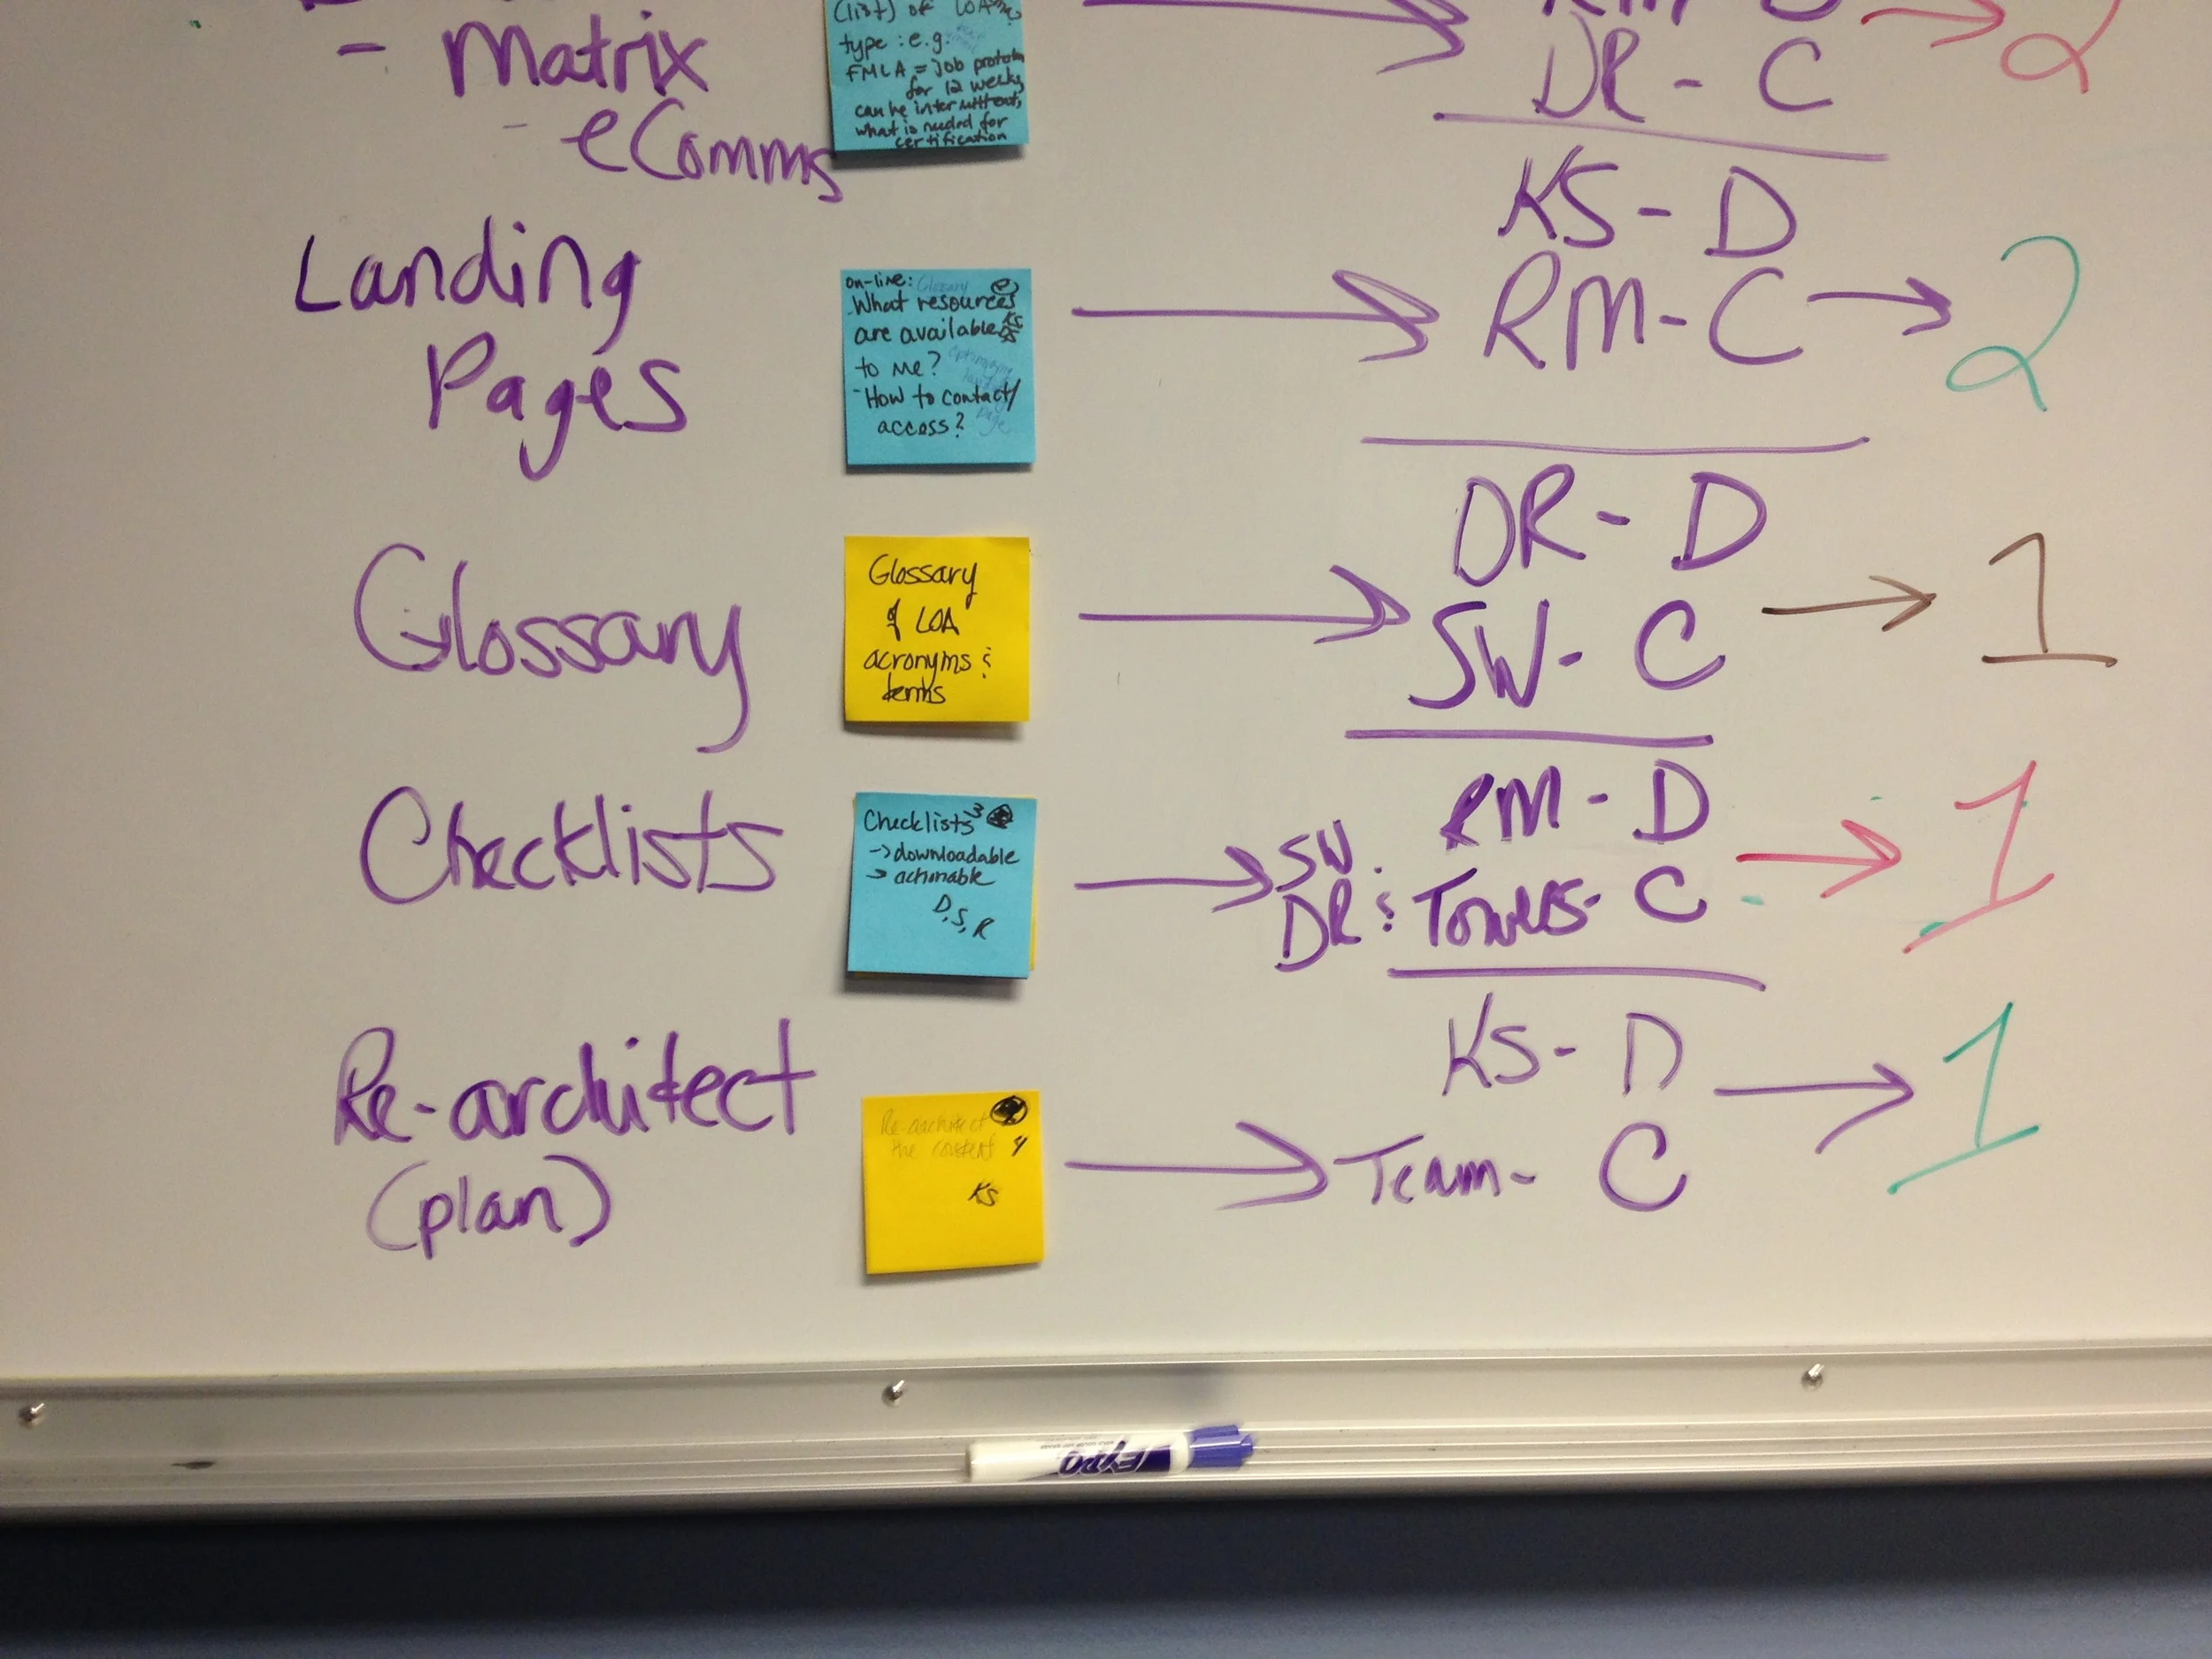 - Matrix
- eComms
(list) of LOA
type: e.g.
FMLA = job
for 12 weeks,
can be
what is needed for
certification
DR - C
2
Landing
Pages
on-line: Glossary
- What resources
are available KS
to me?
- How to contact/
access?
page
KS - D
RM - C
2
Glossary
Glossary
of LOA
acronyms &
terms
DR - D
SW - C
1
Checklists
Checklists 3
-> downloadable
-> actionable
D, S, R
SW.
DR &
RM - D
Towers - C
1
Re-architect
(plan)
Re-architect
the content 4
KS
KS - D
Team - C
1
EXPO